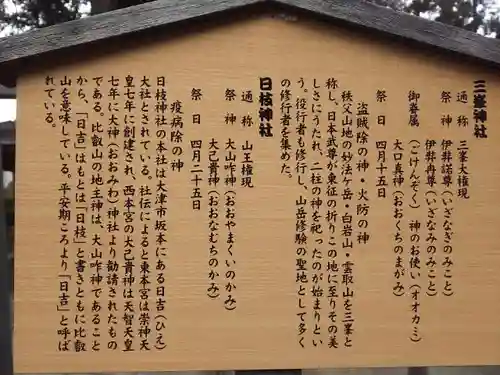 三峯神社
通称 三峯大権現
祭神 伊弉諾尊(いざなぎのみこと)
伊弉冉尊(いざなみのみこと)
御眷属 大口真神(おおくちのまがみ)
(ごけんぞく) 神のお使い(オオカミ)
祭日 四月十五日
盗賊除の神・火防の神
秩父山地の妙法ヶ岳・白岩山・雲取山を三峯と
称し、日本武尊が東征の折りこの地に至りその美
しさにうたれ、二柱の神を祀ったのが始まりとい
う。役行者も修行し、山岳修験の聖地として多く
の修行者を集めた。
日枝神社
通称 山王権現
祭神 大山咋神(おおやまくいのかみ)
大己貴神(おおなむちのかみ)
祭日 四月二十五日
疫病除の神
日枝神社の本社は大津市坂本にある日吉(ひえ)
大社とされている。社伝によると東本宮は崇神天
皇七年に創建され、西本宮の大己貴神は天智天皇
七年に大神(おおみわ)神社より勧請されたもの
である。比叡山の地主神は、大山咋神であること
から、「日吉」はもとは「日枝」と書きともに比叡
山を意味している。平安期ころより「日吉」と呼ば
れている。